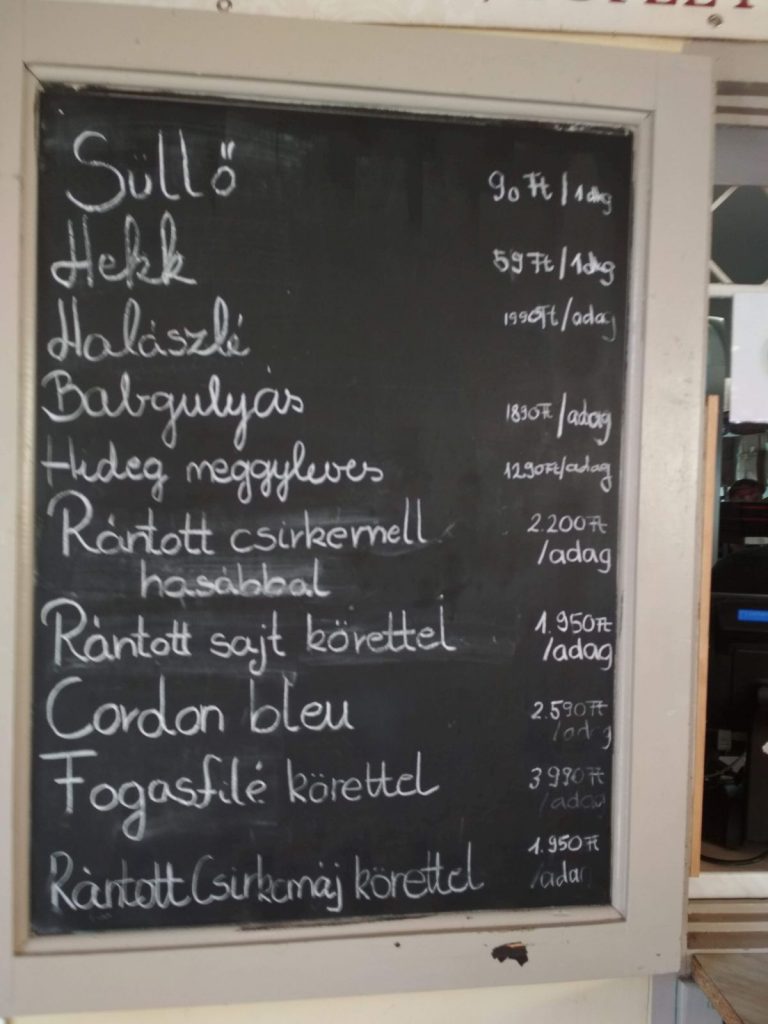 Süllő 90 Ft/1dkg
Hekk 59 Ft/1dkg
Halászlé 1990Ft/adag
Babgulyás 1890Ft/adag
Hideg meggyleves 1290Ft/adag
Rántott csirkemell 2.200Ft
hasábbal /adag
Rántott sajt körettel 1.950Ft
/adag
Cordon bleu 2.590Ft
/adag
Fogasfilé körettel 3990Ft
/adag
Rántott Csirkemáj körettel 1.950Ft
/adag